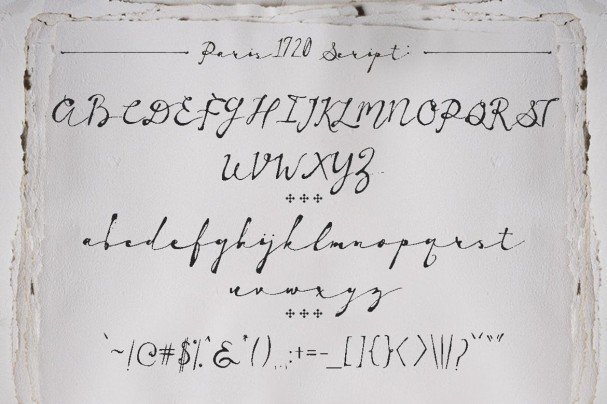 Paris 1720 Script:
ABCDEFGHIJKLMNOPQRST
UVWXYZ
abcdefghijklmnopqrst
uvwxyz
`~!@#$%^&*().,;:+=-_[]{}<>\||/?''""